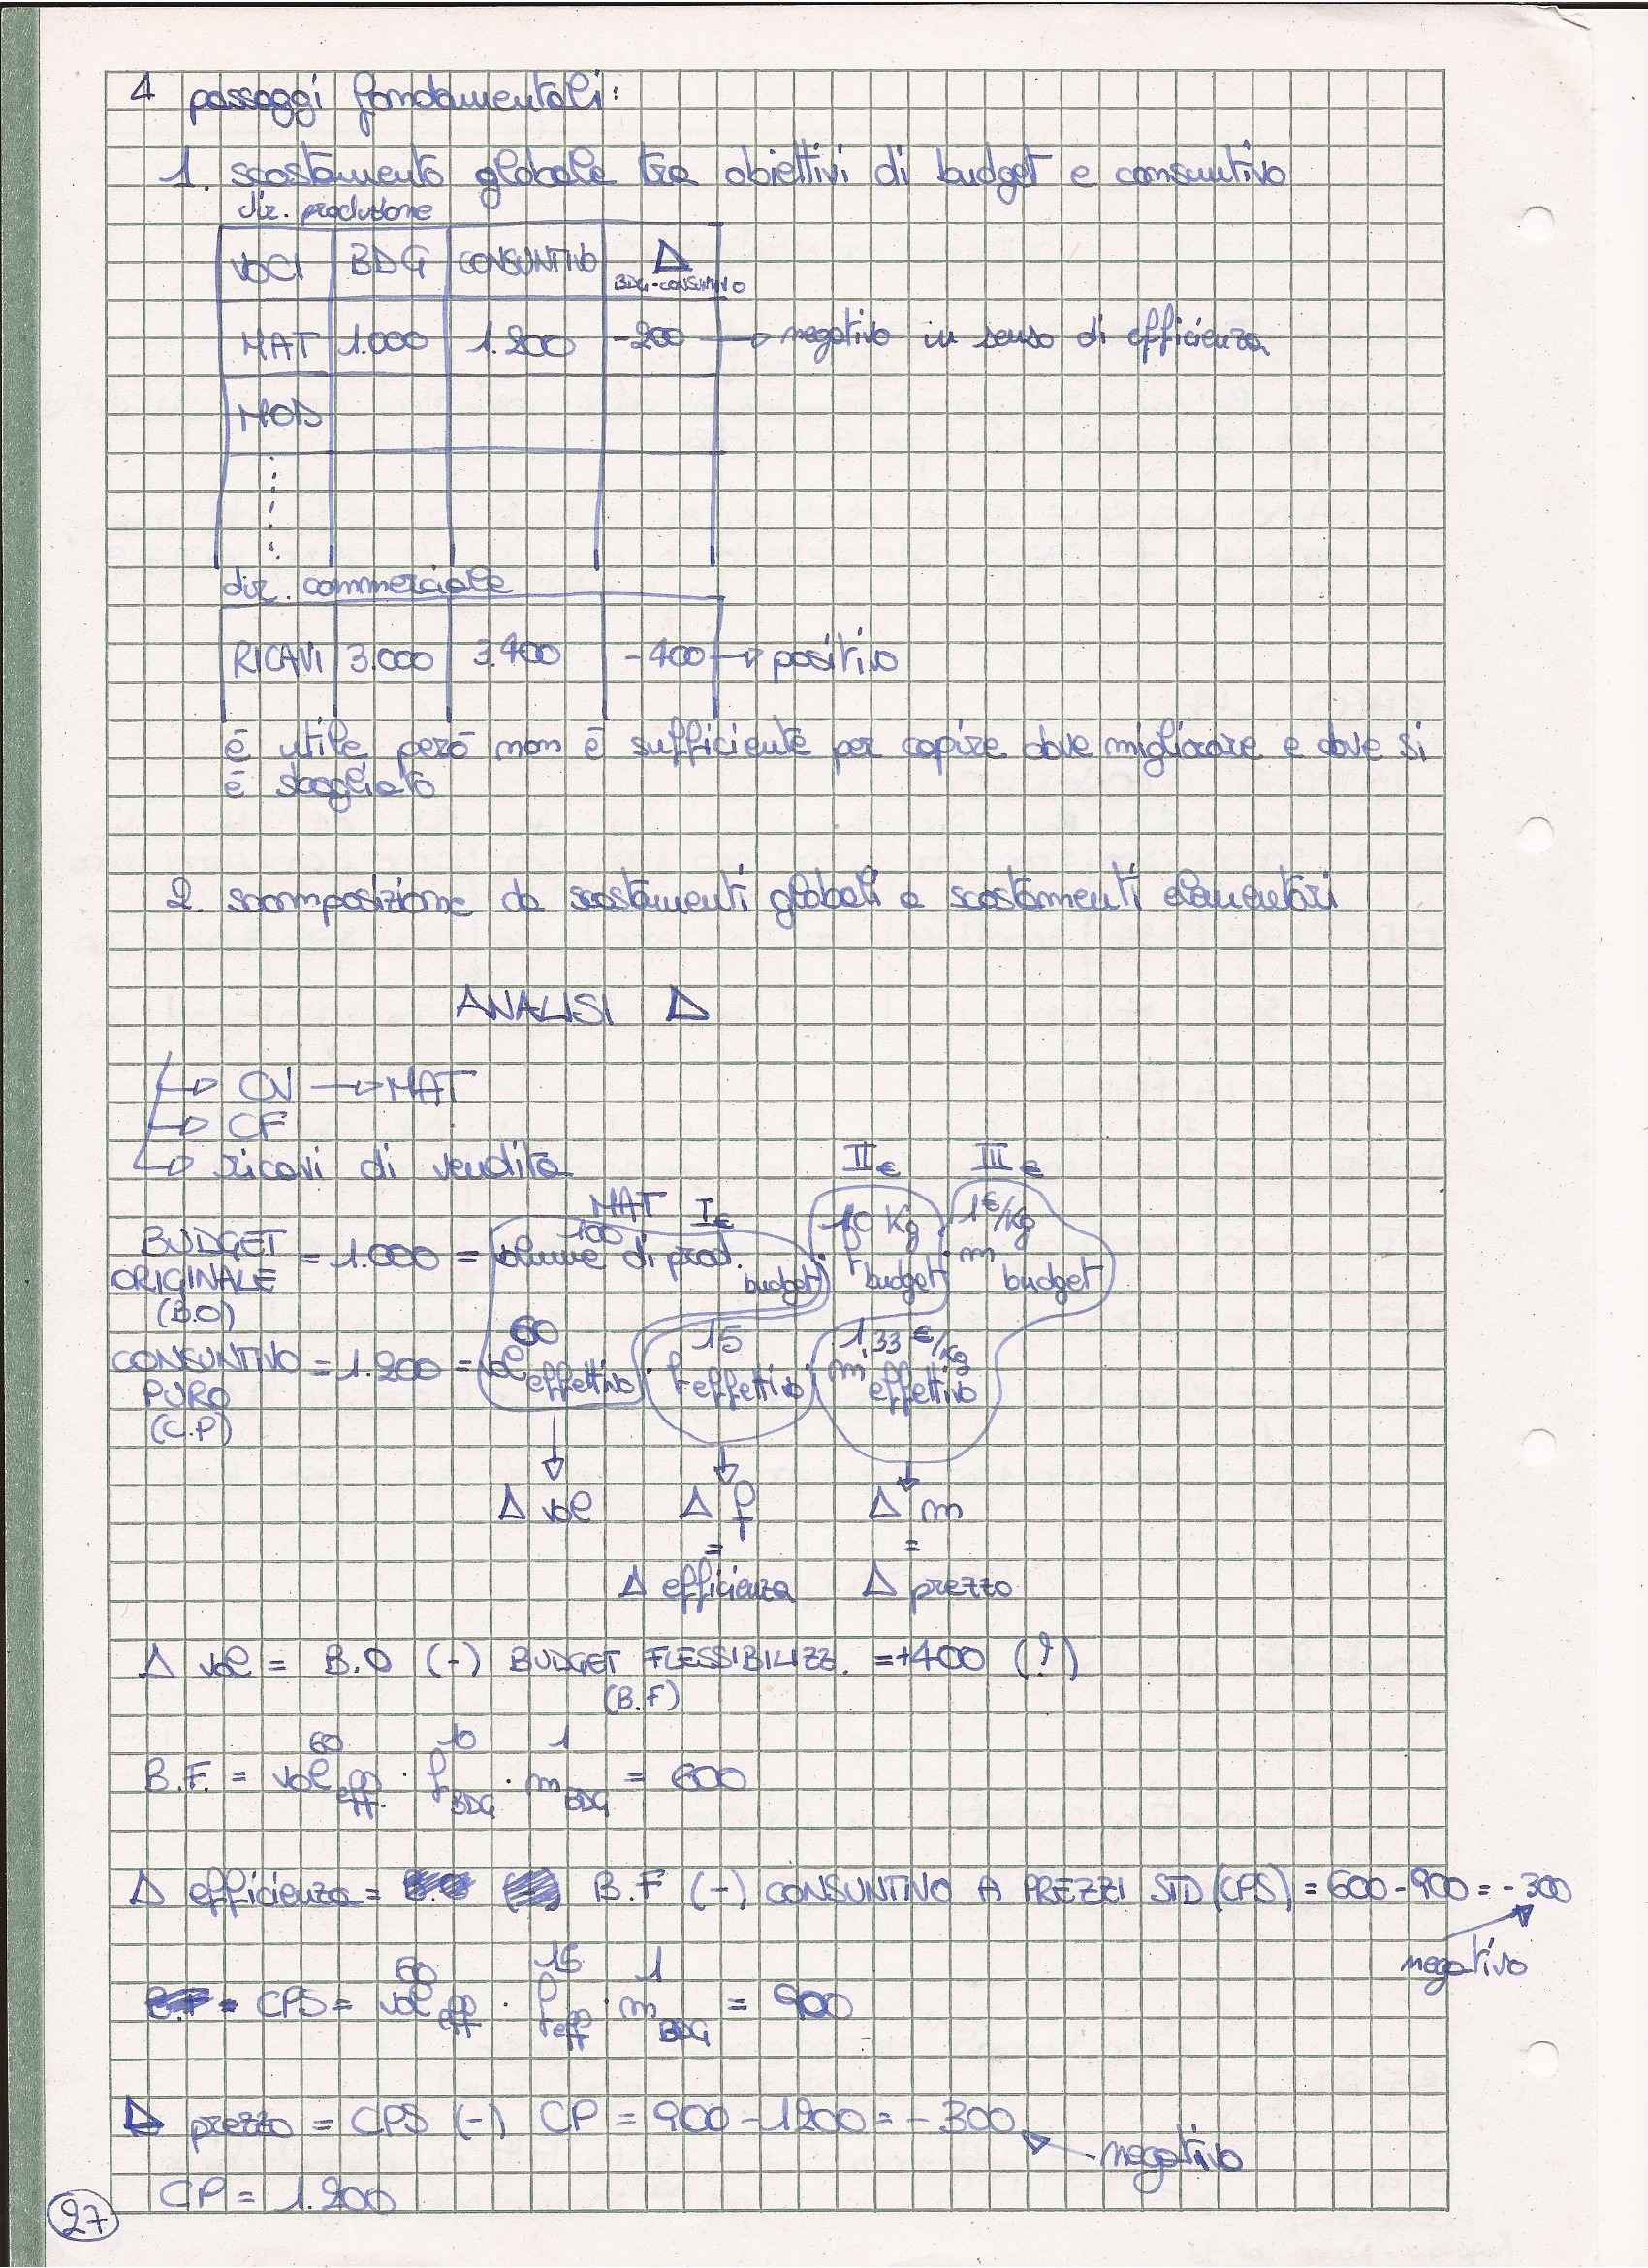 4 passaggi fondamentali:
1. scostamento globale tra obiettivi di budget e consuntivo
dir. produzione
VOCI BDG CONSUNTIVO Δ
BDG-CONSUNTIVO
MAT 1.000 1.200 -200 → negativo in senso di efficienza
MOD
dir. commerciale
RICAVI 3.000 3.400 -400 → positivo
è utile però non è sufficiente per capire dove migliorare e dove si
è sbagliato
2. scomposizione da scostamenti globali a scostamenti elementari
ANALISI Δ
→ CV → MAT
→ CF
→ ricavi di vendita
II€ III€
MAT I€
100 10 Kg 1€/Kg
BUDGET ORIGINALE (B.O) = 1.000 = volume di prod. budget · f budget · m budget
60 15 1,33 €/Kg
CONSUNTIVO PURO (C.P) = 1.200 = vol effettivo · f effettivo · m effettivo
Δ vol Δ f Δ m
= =
Δ efficienza Δ prezzo
Δ vol = B.O (-) BUDGET FLESSIBILIZZ. = +400 (?)
(B.F)
60 10 1
B.F. = vol eff. · f BDG · m BDG = 600
Δ efficienza = B.F (-) CONSUNTIVO A PREZZI STD (CPS) = 600 - 900 = - 300
negativo
60 15 1
CPS = vol eff · f eff · m BDG = 900
Δ prezzo = CPS (-) CP = 900 - 1200 = - 300
negativo
CP = 1.200
27